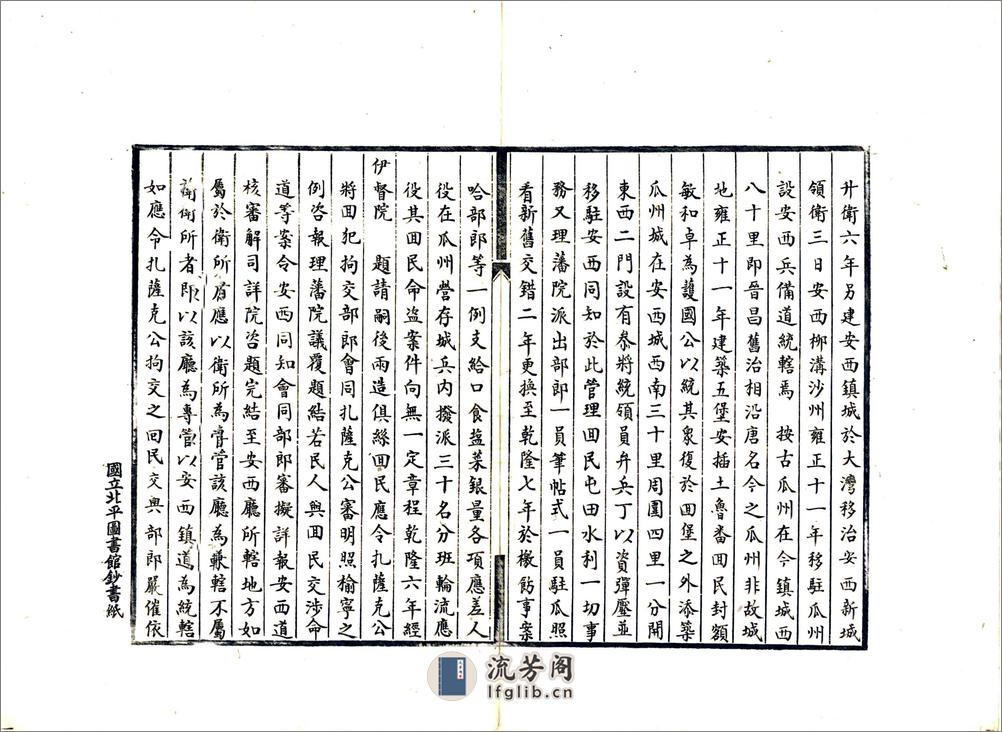 廾衛六年另建安西鎮城於大灣移治安西新城
領衛三日安西柳溝沙州雍正十一年移駐瓜州
設安西兵備道統轄焉　按古瓜州在今鎮城西
八十里即晉昌舊治相沿唐名今之瓜州非故城
地雍正十一年建築五堡安插土魯番囬民封額
敏和卓為護國公以統其衆復於囬堡之外添築
瓜州城在安西城西南三十里周圍四里一分開
東西二門設有叅將統領員弁兵丁以資彈壓並
移駐安西同知於此管理囬民屯田水利一切事
務又理藩院派出部郎一員筆帖式一員駐瓜照
看新舊交錯二年更換至乾隆七年於檄飭事案
哈部郎等一例支給口食盐菜銀量各項應差人
役在瓜州營存城兵内撥派三十名分班輪流應
役其囬民命盜案件向無一定章程乾隆六年經
伊督院　題請嗣後兩造俱絲囬民應令扎薩克公
將囬犯拘交部郎會同扎薩克公審明照榆寧之
例咨報理藩院議覆題結若民人與囬民交涉命
道等案令安西同知會同部郎審擬詳報安西道
核審解司詳院咨題完結至安西廳所轄地方如
屬於衛所者應以衛所為耑管該廳為兼轄不屬
衛所者即以該廳為專管以安西鎮道為統轄
如應令扎薩克公拘交之囬民交與部郎嚴催依
國立北平圖書館鈔書紙
流芳阁
lfglib.cn